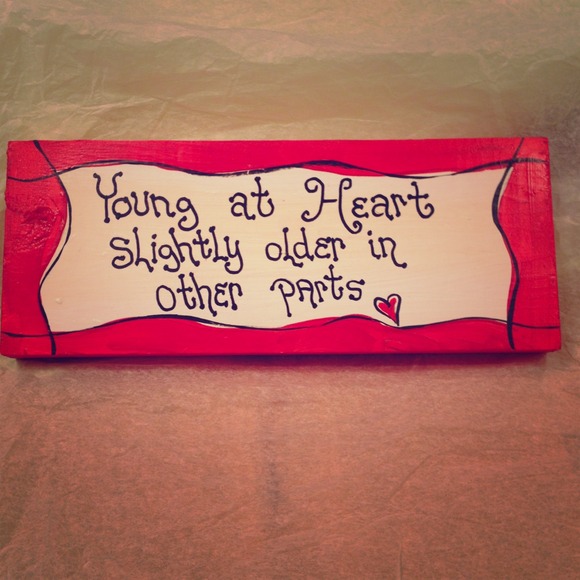 Young at Heart
slightly older in
other parts